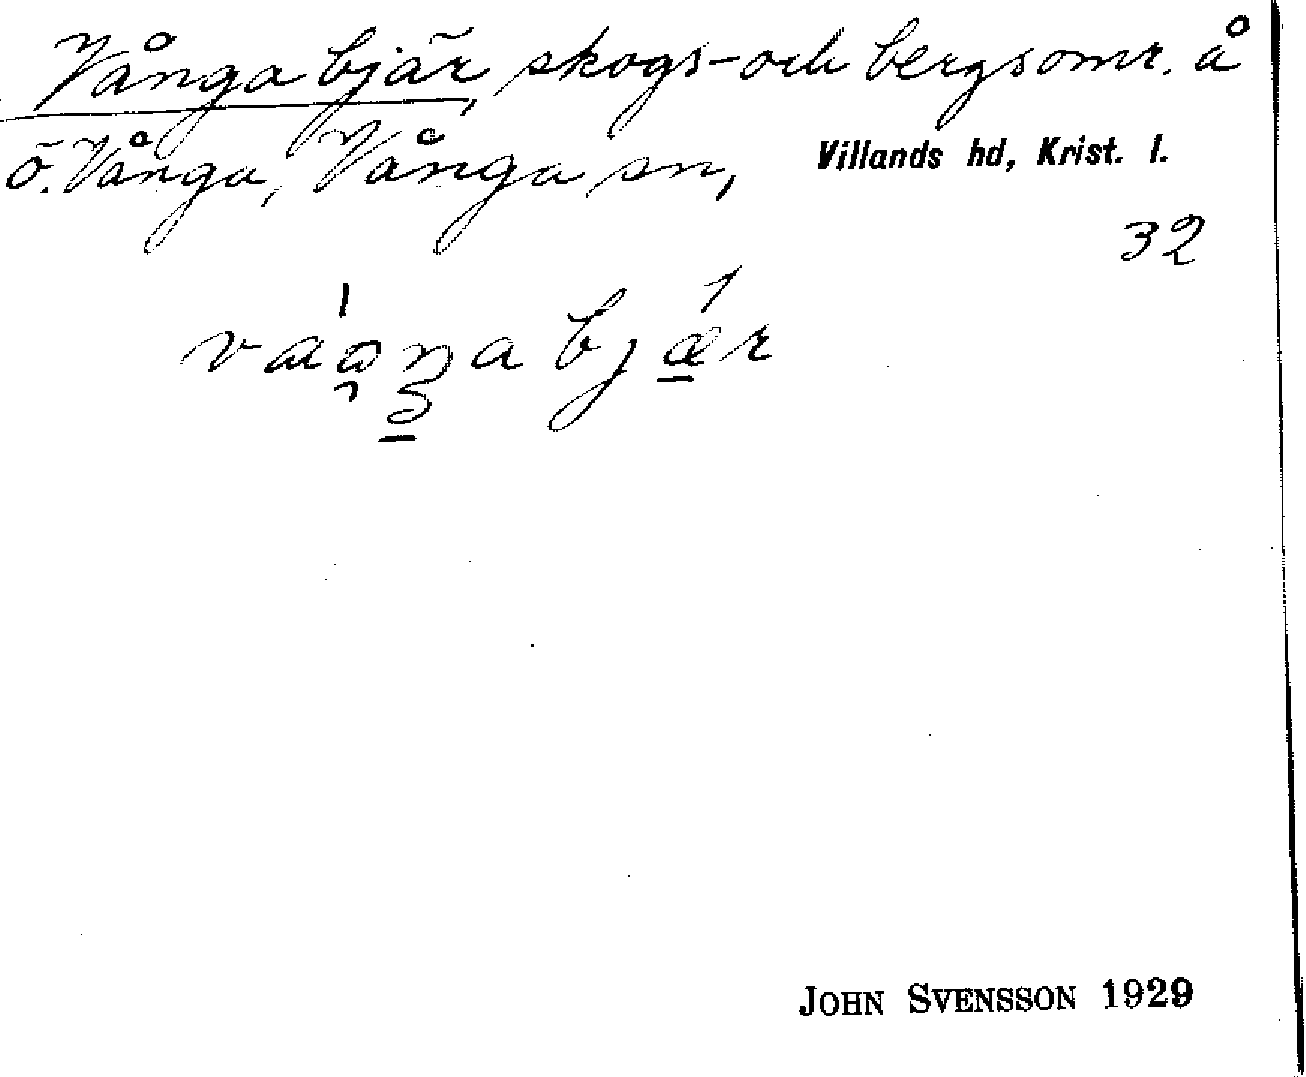 Vånga bjär, skogs- och bergsomr. å
Ö. Vånga, Vånga sn, Villands hd, Krist. l.
32
JOHN SVENSSON 1929